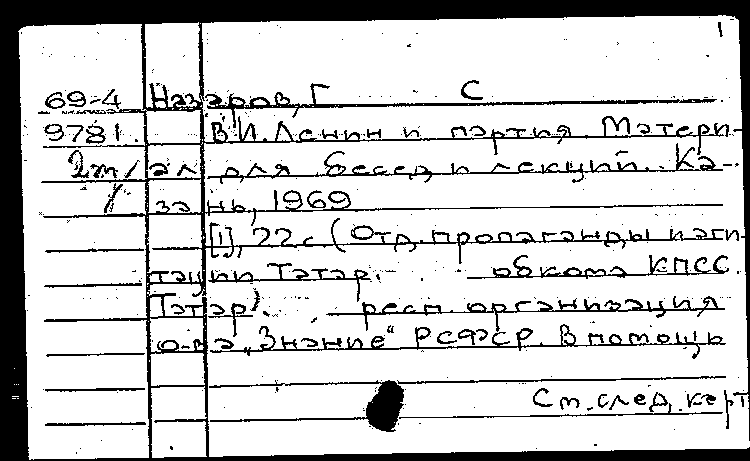 1
69-4 Назаров, Г С
9781. В.И. Ленин и партия. Матери-
2т/ ал для бесед и лекций. Ка-
зань, 1969
[1], 22 с (Отд. пропаганды и аги-
тации Татар. обкома КПСС.
Татар. респ. организация
о-ва „Знание“ РСФСР. В помощь
См. след. карт